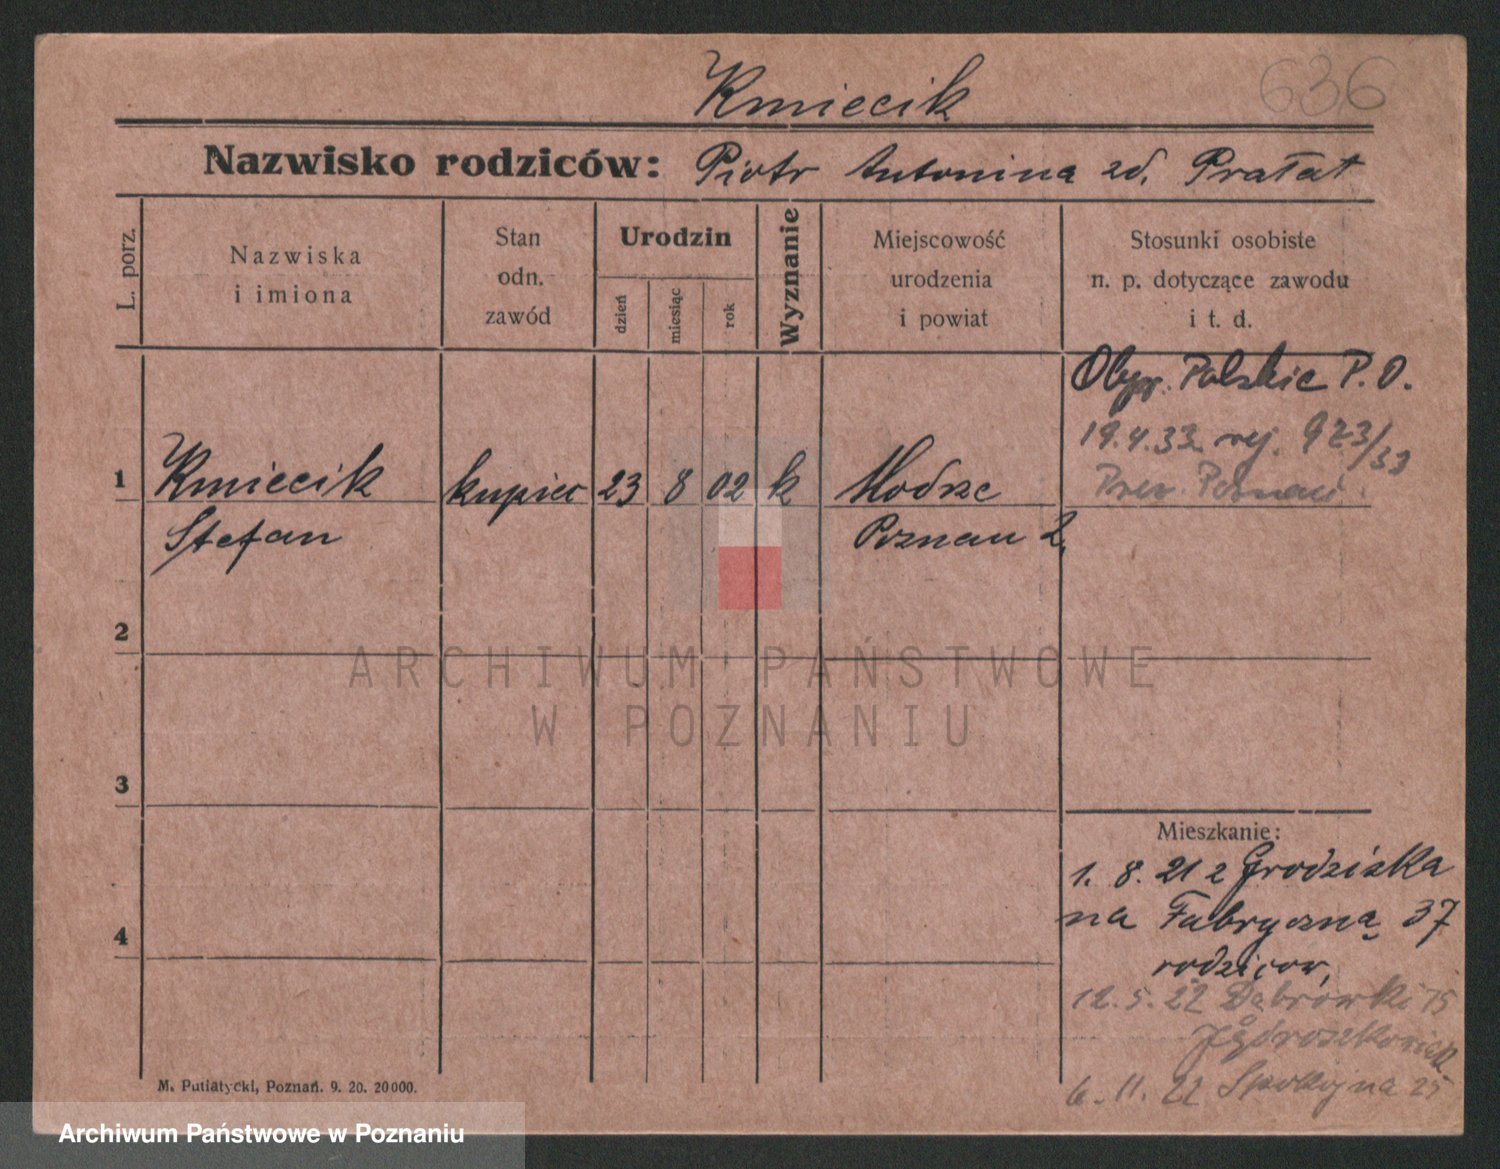 Kmiecik 636
Nazwisko rodziców: Piotr Antonina zd. Prałat
L. porz.
Nazwiska
i imiona
Stan
odn.
zawód
Urodzin
dzień
miesiąc
rok
Wyznanie
Miejscowość
urodzenia
i powiat
Stosunki osobiste
n. p. dotyczące zawodu
i t. d.
Obyw. Polskie P. O.
19.4.33. rej. 923/33
Prez. Poznań
1 Kmiecik kupiec 23 8 02 k Modrze
Stefan Poznań Z.
2
3
4
ARCHIWUM PAŃSTWOWE
W POZNANIU
Mieszkanie:
1. 8. 21 z Grodziska
na Fabryczną 37
rodziców,
12. 5. 22 Dąbrówki 15
6. 11. 22 Spokojna 25
M. Putiatycki, Poznań. 9. 20. 20000.
Archiwum Państwowe w Poznaniu